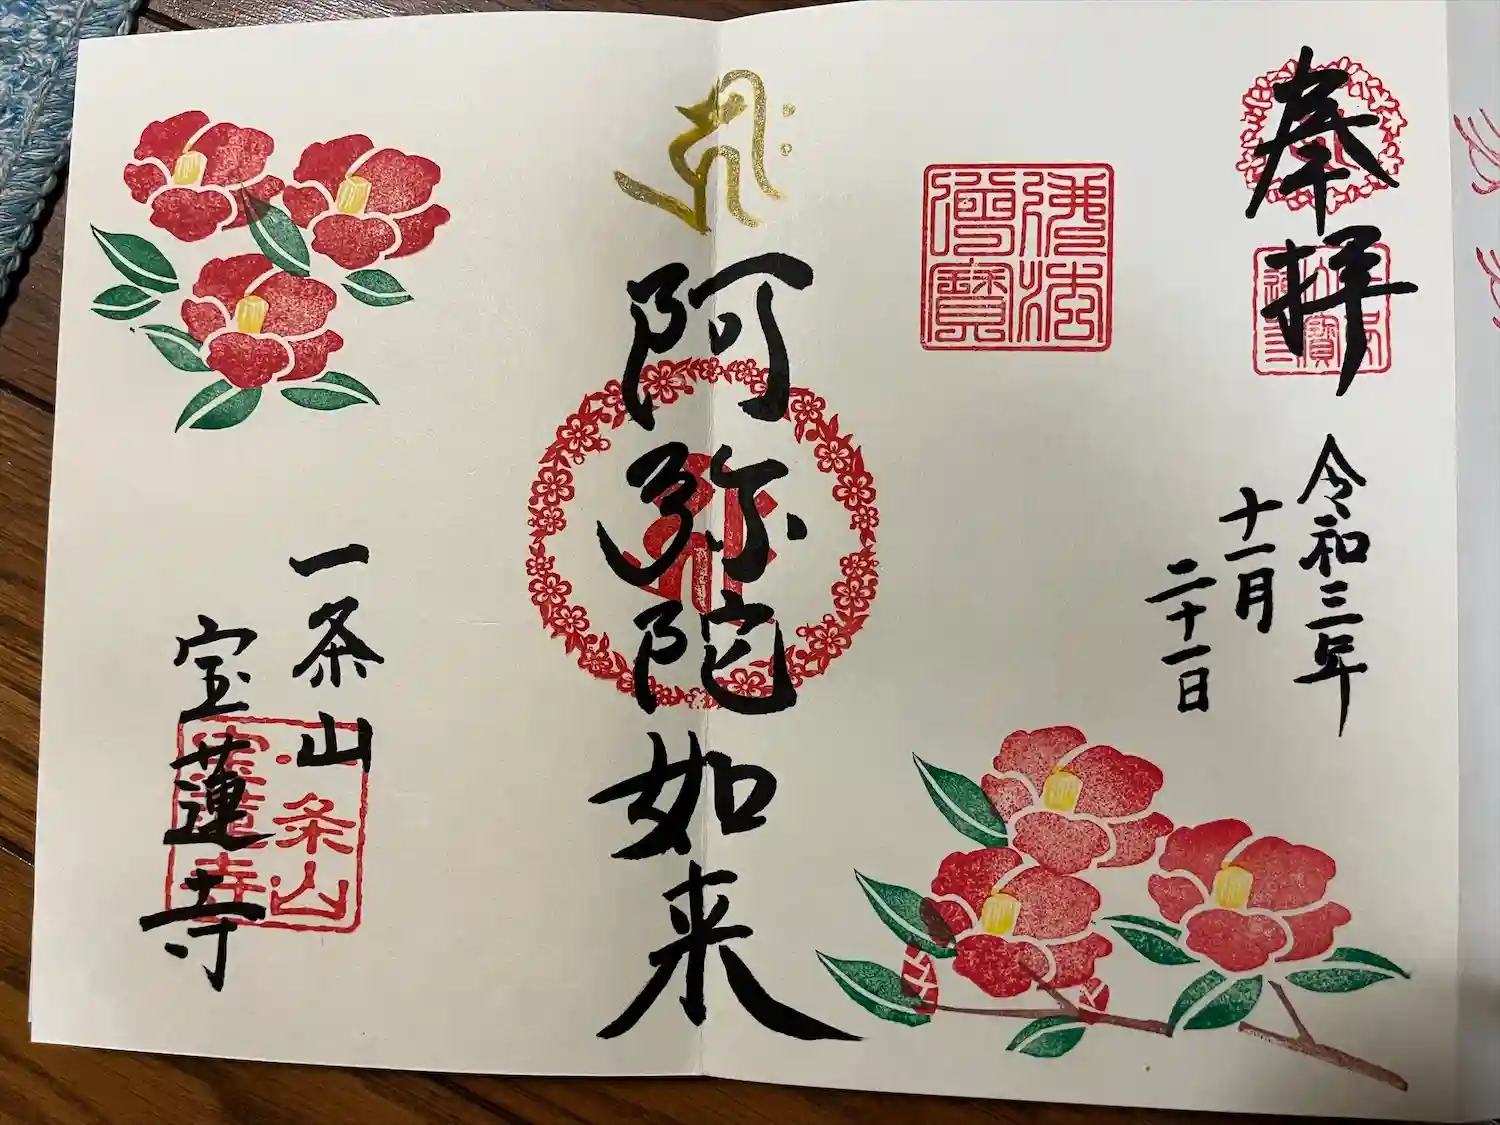 奉拝
令和三年
十一月
二十一日
佛法
僧寶
阿弥陀如来
一条山
宝蓮寺
一条山
宝蓮寺